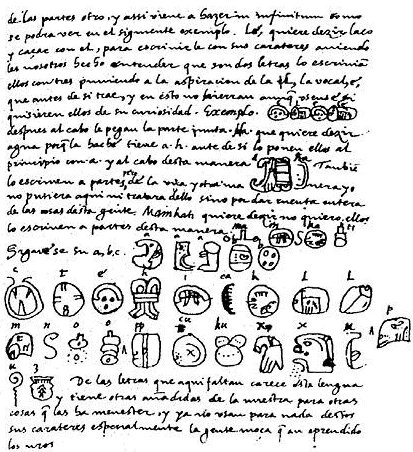 de las partes otro, y assi viene a hazer in infinitum como
se podra ver en el siguiente exemplo. Lé, quiere dezir laço
y caçar con el, para escrivirle con sus carateres aviendo
les nosotros hecho entender que son dos letras lo escrivian
ellos con tres puniendo a la aspiracion de la l, la vocal e,
que antes de si trae, y en esto no hierran aunq usense si
quisieren ellos de su curiosidad. Exemplo.
despues al cabo le pegan la parte junta. Ha que quiere dezir
agua porq la hache tiene a. h. ante de si lo ponen ellos al
principio con a. y al cabo desta manera Tambie
lo escriven a partes de la una y otra manera yo
no pusiera aqui ni tratara dello sino por dar cuenta entera
de las cosas desta gente. Mainkati quiere dezir no quiero, ellos
lo escriven a partes desta manera
Siguese su a, b, c. a a a b b
c t e h i ca k l l
m n o o pp cu ku x x u p
u z
De las letras que aqui faltan carece esta lengua
y tiene otras añadidas de la nuestra para otras
cosas q las ha menester, y ya no usan para nada destos
sus carateres especialmente la gente moça q an aprendido
los nros